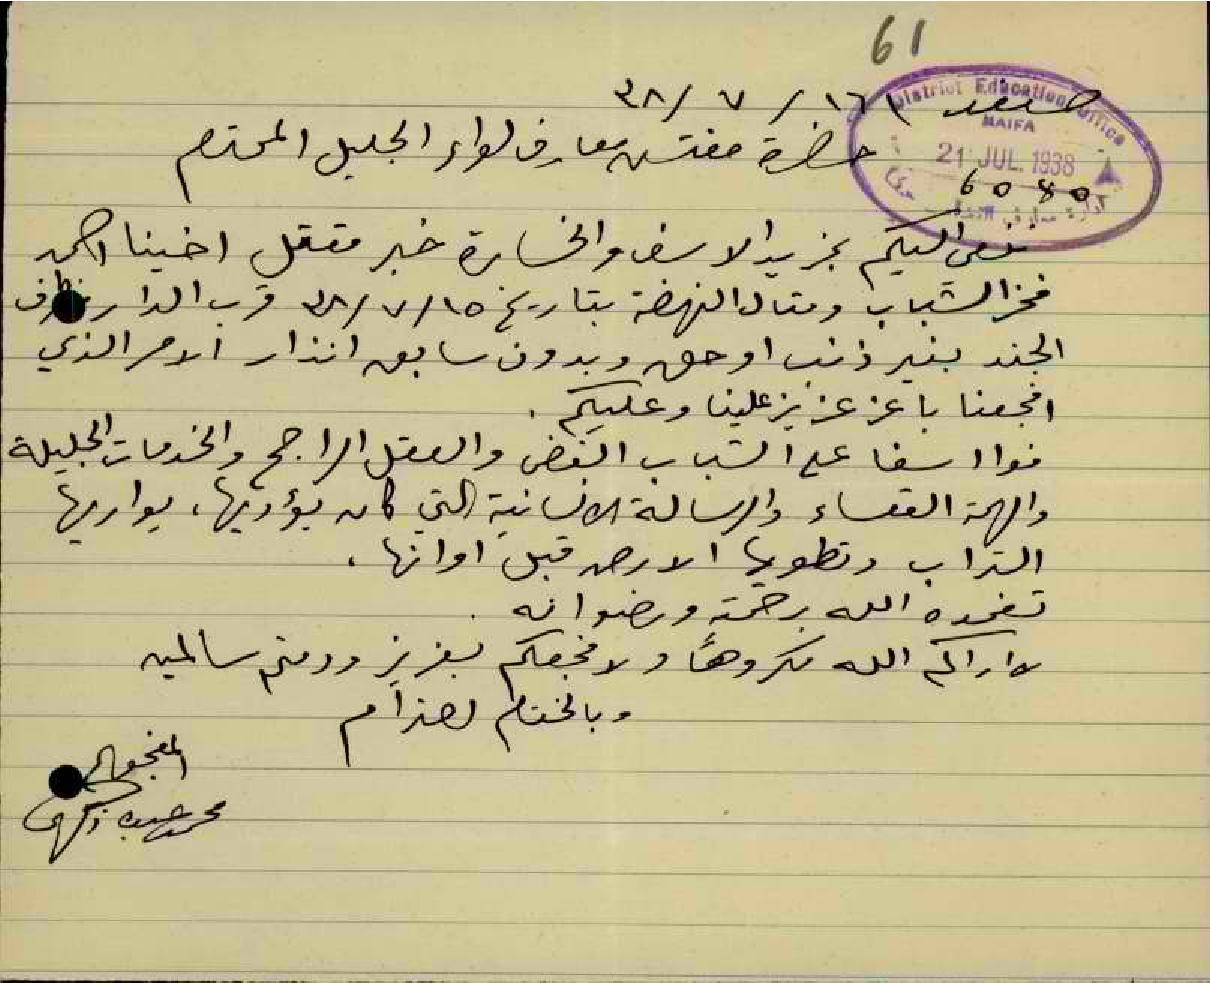 61
صفد ١٦ / ٧ / ٣٨
District Education Office
HAIFA
21 JUL. 1938
6080
إدارة معارف
حضرة مفتش معارف لواء الجليل المحترم
ننعى اليكم بمزيد الاسف والخسارة خبر مقتل اخينا احمد
فخر الشباب ومثال النهضة بتاريخ ٣٨/٧/١٥ قرب الدار بظرف
الجند بغير ذنب او حق وبدون سابق انذار الامر الذي
افجعنا باعز عزيز علينا وعليكم .
فوا اسفا على الشباب الغض والعقل الراجح والخدمات الجليلة
والهمة القعساء والرسالة الانسانية التي كان يؤديها ، يواريها
التراب وتطويها الارض قبل اوانها .
تغمده الله برحمته ورضوانه .
لا اراكم الله مكروهاً ولا فجعكم بعزيز ودمتم سالمين
وبالختام
المفجوع
محمد